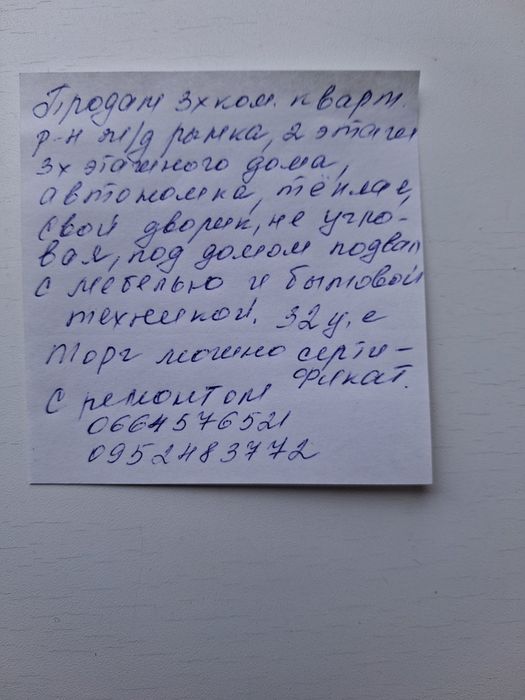 Продам 3х ком. кварт.
р-н ж/д рынка, 2 этаж
3х этажного дома,
автономка, тёплая,
свой дворик, не угло-
вая, под домом подвал
с мебелью и бытовой
техникой. 32 у.е
Торг можно серти-
фикат.
С ремонтом
0664576521
0952483772